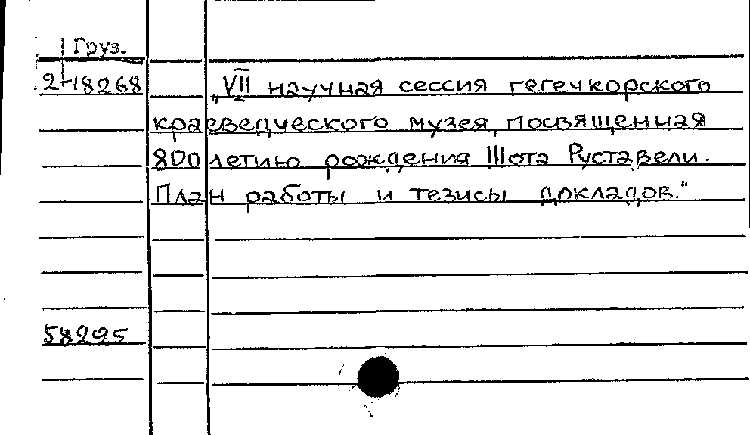 Груз.
2-18268 „VII научная сессия гегечкорского
краеведческого музея, посвященная
800летию рождения Шота Руставели.
План работы и тезисы докладов."
58295